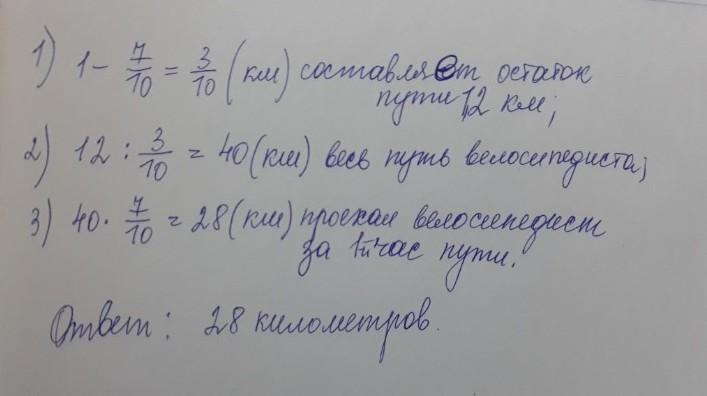 1) 1 - 7/10 = 3/10 (км) составляет остаток
пути 12 км;
2) 12 : 3/10 = 40 (км) весь путь велосипедиста;
3) 40 · 7/10 = 28 (км) проехал велосипедист
за 1й час пути.
Ответ: 28 километров.